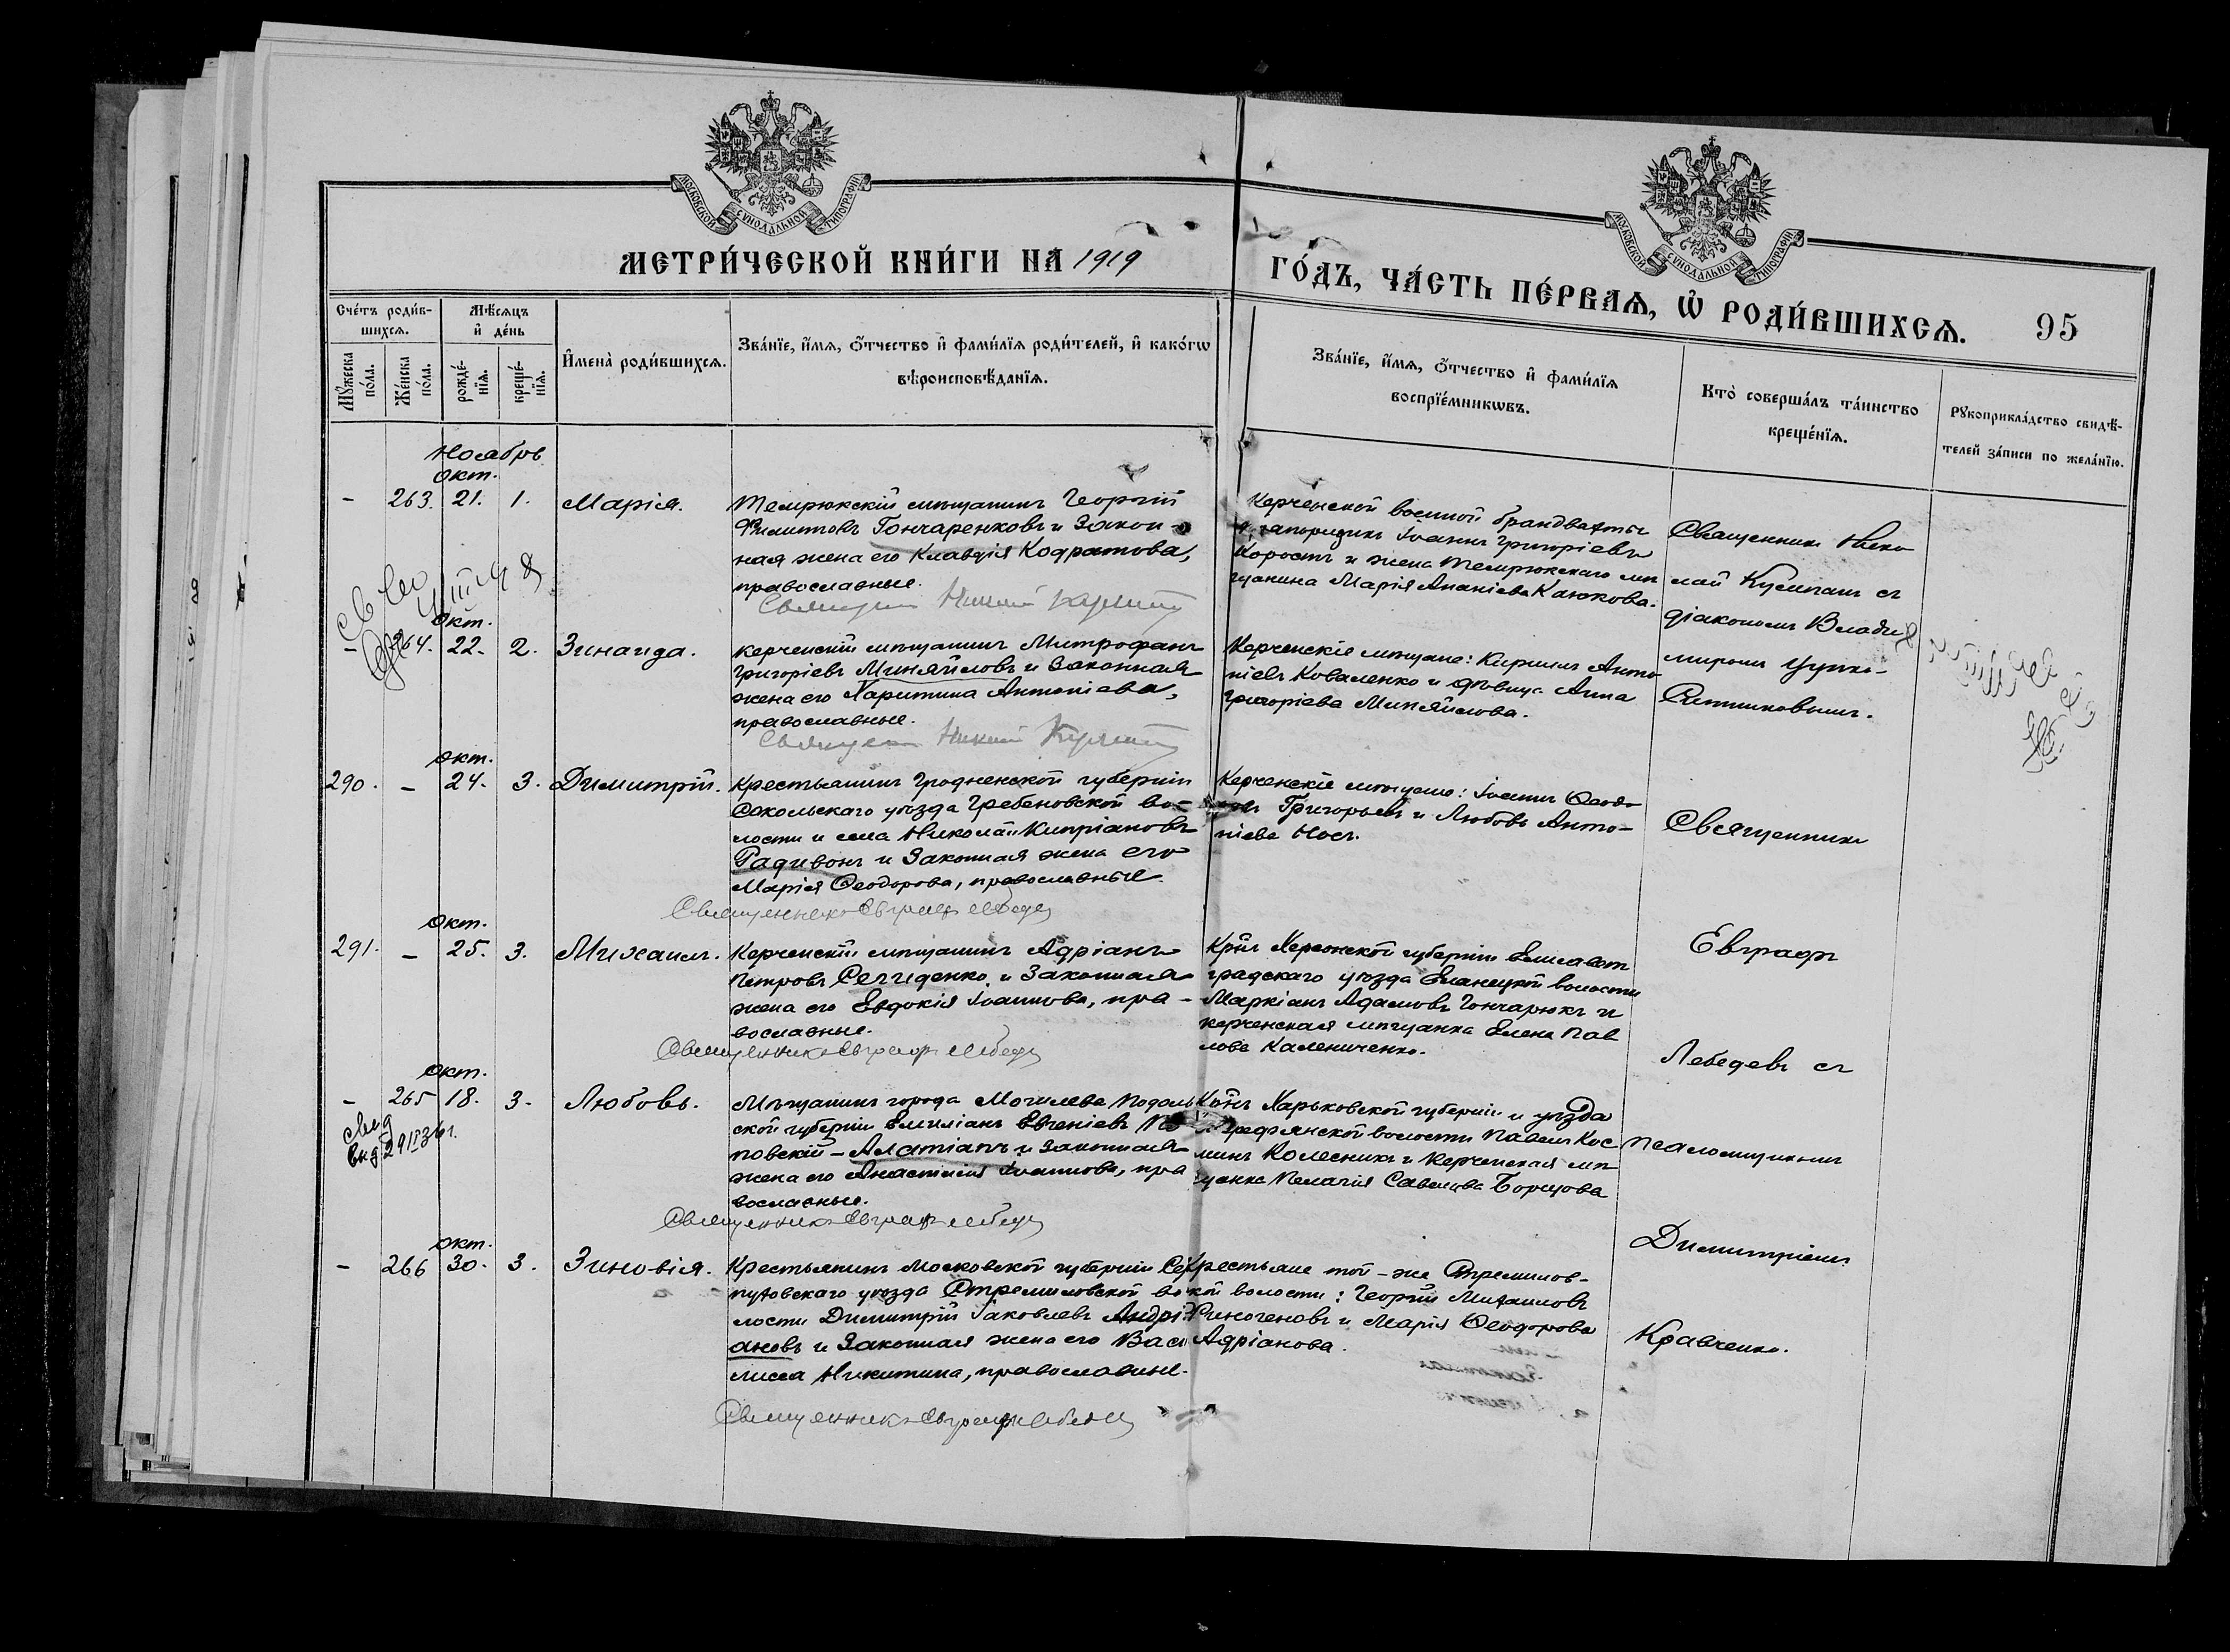 МОСКОВСКОЙ СУНОДАЛЬНОЙ ТИПОГРАФІИ
МОСКОВСКОЙ СУНОДАЛЬНОЙ ТИПОГРАФІИ
МЕТРИ́ЧЕСКОЙ КНИ́ГИ НА 1919
ГО́ДЪ, ЧА́СТЬ ПЕ́РВАѦ, Ѡ РОДИ́ВШИХСѦ. 95
Сче́тъ роди́в-
шихсѧ.
Мꙋ́жеска
по́ла.
Же́нска
по́ла.
Мѣ́сѧцъ
и҆ де́нь
рожде́-
нїѧ.
креще́-
нїѧ.
И҆мена̀ роди́вшихсѧ.
Зва́нїе, и҆́мѧ, ѻ҆́тчество и҆ фами́лїѧ роди́телей, и҆ како́гѡ
вѣроисповѣ́данїѧ.
Зва́нїе, и҆́мѧ, ѻ҆́тчество и҆ фами́лїѧ
воспрїе́мникѡвъ.
Кто̀ соверша́лъ та́инство
креще́нїѧ.
Рꙋкоприкла́дство свидѣ́-
телей за́писи по жела́нїю.
Ноябрь
Окт.
- 263. 21. 1. Марія.
Темрюкскій мѣщанинъ Георгій
Филиповъ Гончаренковъ и закон-
ная жена его Клавдія Кодратова,
православные.
Керченской военной брандвахты
Іоаннъ Григоріевъ
Коростъ и жена Темрюкскаго мѣ
щанина Марія Ананіева Каюкова.
Священникъ Нико
лай Кулипашъ съ
діакономъ Влади
миромъ
Окт.
- 264. 22. 2. Зинаида.
Керченскій мѣщанинъ Митрофанъ
Григоріевъ Миняйловъ и законная
жена его Харитина Антоніева,
православные.
Керченскіе мѣщане: Кириллъ Анто
ніевъ Коваленко и дѣвица Анна
Григоріева Миняйлова.
Окт.
290. - 24. 3. Димитрій.
Крестьянинъ Гродненской губерніи
Сокольскаго уѣзда Гребеновской во-
лости и села Николай Кипріановъ
Радивонъ и законная жена его
Марія Ѳеодорова, православные.
Священникъ Евграфъ Лебедевъ
Керченскіе мѣщане: Іоаннъ Ѳеодо
ровъ Григорьевъ и Любовь Анто-
ніева Носъ.
Священникъ
Евграфъ
Лебедевъ съ
псаломщикомъ
Димитріемъ
Кравченко.
Окт.
291. - 25. 3. Михаилъ.
Керченскій мѣщанинъ Адріанъ
Петровъ Селиденко и законная
жена его Евдокія Іоаннова, пра-
вославные.
Священникъ Евграфъ Лебедевъ
Крнъ Херсонской губерніи Елисавет
градскаго уѣзда Еланецкой волости
Маркіанъ Адамовъ Гончарюкъ и
керченская мѣщанка Елена Пав
лова Калениченко.
Окт.
- 265 18. 3. Любовь.
Мѣщанинъ города Могилева Подоль
ской губерніи Емиліанъ Евгеніевъ
повскій - Алатіанъ и законная
жена его Анастасія Іоаннова, пра
вославные.
Священникъ Евграфъ Лебедевъ
Крнъ Харьковской губерніи и уѣзда
волости Павелъ Кос
минъ Колесникъ и Керченская мѣ
щанка Пелагія Савельева Борщова
Окт.
- 266 30. 3. Зиновія.
Крестьянинъ Московской губерніи Сер
пуховскаго уѣзда Стремиловской во
лости Димитрій Іаковлевъ Андрі
ановъ и законная жена его Васи
лисса Никитина, православные.
Священникъ Евграфъ Лебедевъ
Крестьяне той-же Стремилов-
кой волости: Георгій Михаиловъ
Финогеновъ и Марія Ѳеодорова
Адріанова.